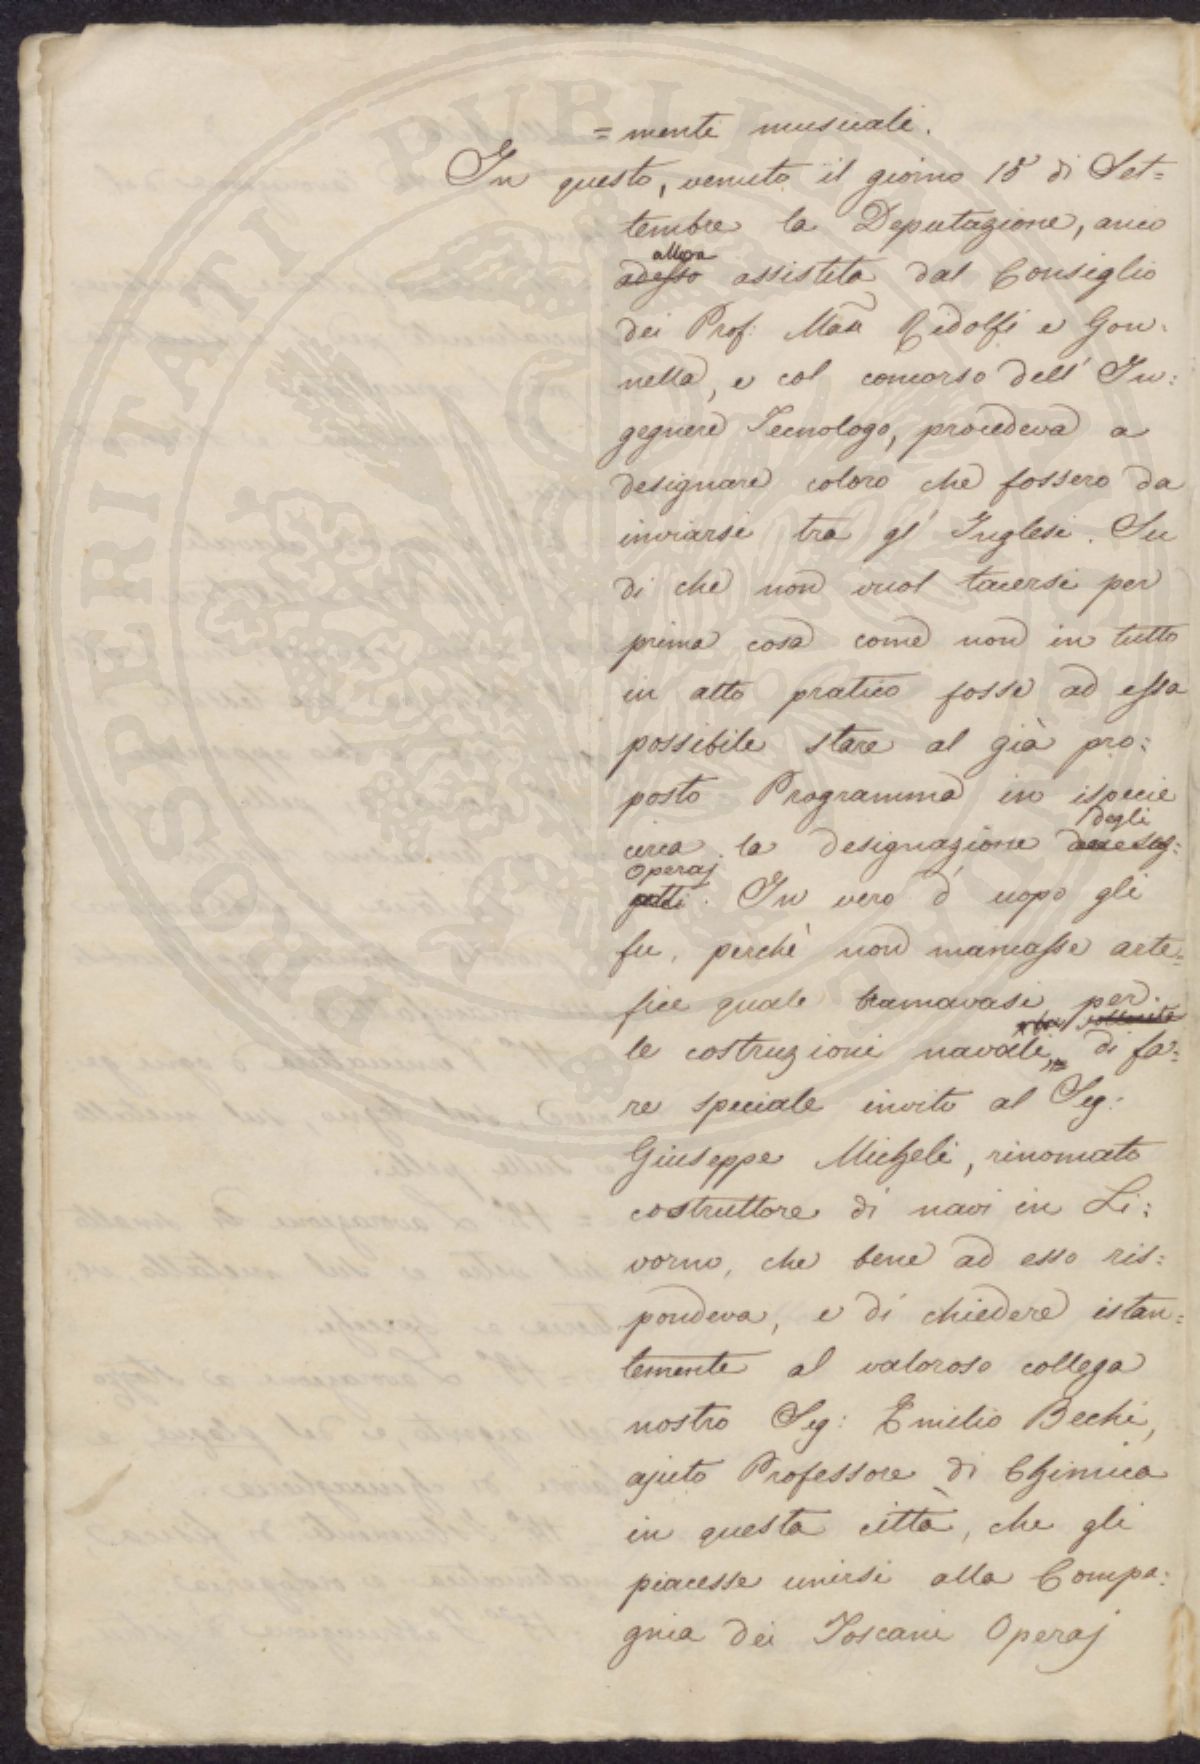 =menti musicali.
In questo, venuto il giorno 15 di Set=
tembre la Deputazione, anco
allora
adesso assistita dal Consiglio
dei Prof: Man Ridolfi e Gon:
nella, e col concorso dell' In:
gegnere Tecnologo, procedeva a
designare coloro che fossero da
inviarsi tra gl' Inglesi. Su
di che non vuol tacersi per
prima cosa come non in tutto
in atto pratico fosse ad essa
possibile stare al già pro:
posto Programma in ispecie
degli
circa la designazione dei sog:
Operaj
getti. In vero d' uopo gli
fu, perchè non mancasse arte=
fice quale bramavasi per
le costruzioni navali, di fa:
re speciale invito al Sig:
Giuseppe Micheli, rinomato
costruttore di navi in Li:
vorno, che bene ad esso ris:
pondeva, e di chiedere istan:
temente al valoroso collega
nostro Sig: Emilio Bechi,
ajuto Professore di Chimica
in questa città, che gli
piacesse unirsi alla Compa:
gnia dei Toscani Operaj
PROSPERITATI PUBLIC